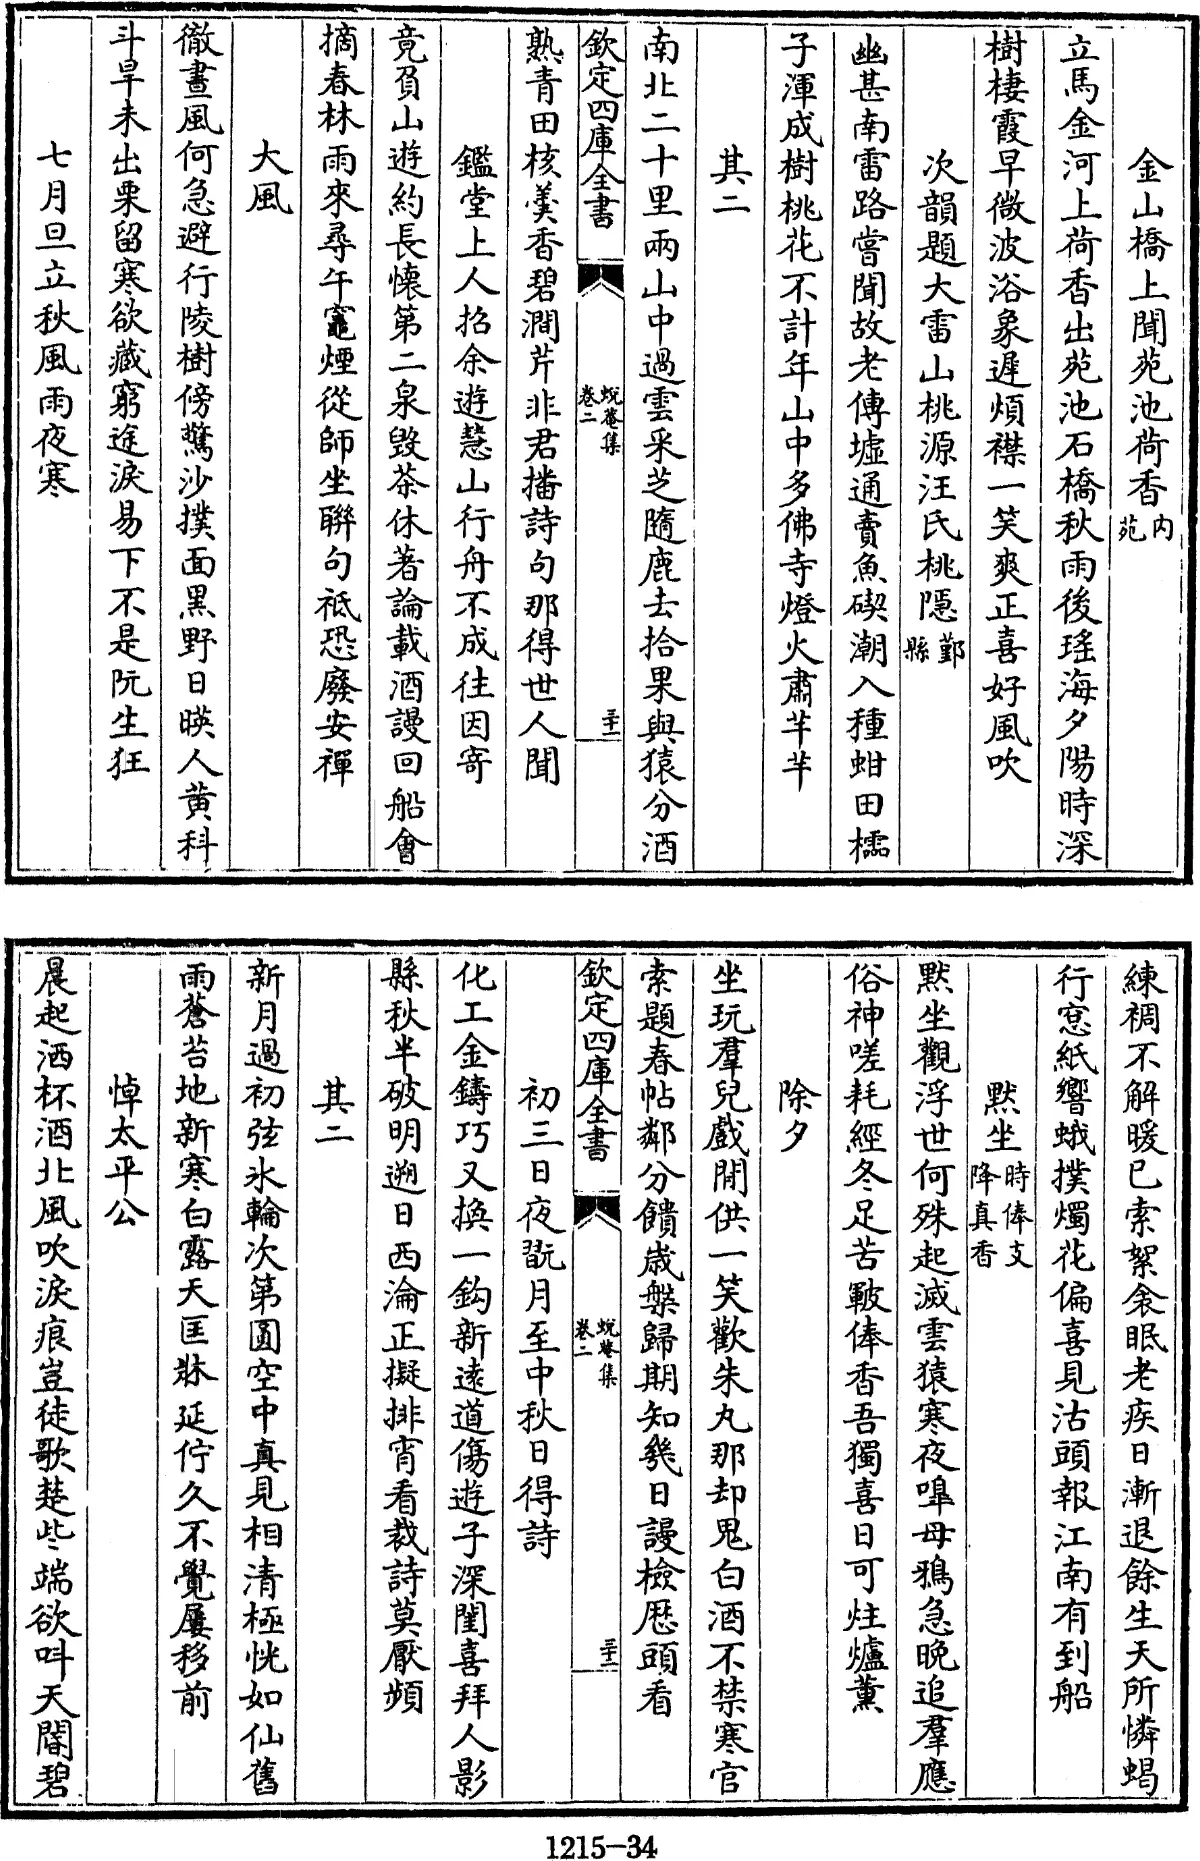 金山橋上聞苑池荷香内苑
立馬金河上荷香出苑池石橋秋雨後瑤海夕陽時深
樹棲霞早微波浴象遲煩襟一笑爽正喜好風吹
次韻題大雷山桃源汪氏桃隱鄞縣
幽甚南雷路嘗聞故老傳墟通賣魚磎潮入種蚶田櫺
子渾成樹桃花不計年山中多佛寺燈火肅芊芊
其二
南北二十里兩山中過雲采芝隨鹿去拾果與猿分酒
欽定四庫全書
蛻菴集
卷二
三十一
熟青田核羮香碧澗芹非君播詩句那得世人聞
鑑堂上人招余遊慧山行舟不成往因寄
竟負山遊約長懐第二泉毀茶休著論載酒謾回船會
摘春林雨來尋午竈煙從師坐聯句祗恐廢安禪
大風
徹晝風何急避行陵樹傍驚沙撲面黑野日暎人黄科
斗旱未出栗留寒欲藏窮途淚易下不是阮生狂
七月旦立秋風雨夜寒
練裯不解暖已索絮衾眠老疾日漸退餘生天所憐蝎
行窓紙響蛾撲燭花偏喜見沽頭報江南有到船
黙坐時俸支降真香
黙坐觀浮世何殊起滅雲猿寒夜嘷母鴉急晚追羣應
俗神嗟耗經冬足苦皸俸香吾獨喜日可炷爐薰
除夕
坐玩羣兒戲開供一笑歡朱丸那却鬼白酒不禁寒官
索題春帖鄰分饋歳槃歸期知幾日謾檢厯頭看
欽定四庫全書
蛻菴集
卷二
三十二
初三日夜翫月至中秋日得詩
化工金鑄巧又換一鈎新逺道傷遊子深閨喜拜人影
縣秋半破明遡日西淪正擬排宵看裁詩莫厭頻
其二
新月過初弦氷輪次第圓空中真見相清極恍如仙舊
雨蒼苔地新寒白露天匡牀延佇久不覺屢移前
悼太平公
晨起酒杯酒北風吹淚痕豈徒歌楚些端欲呌天閽碧
1215-34